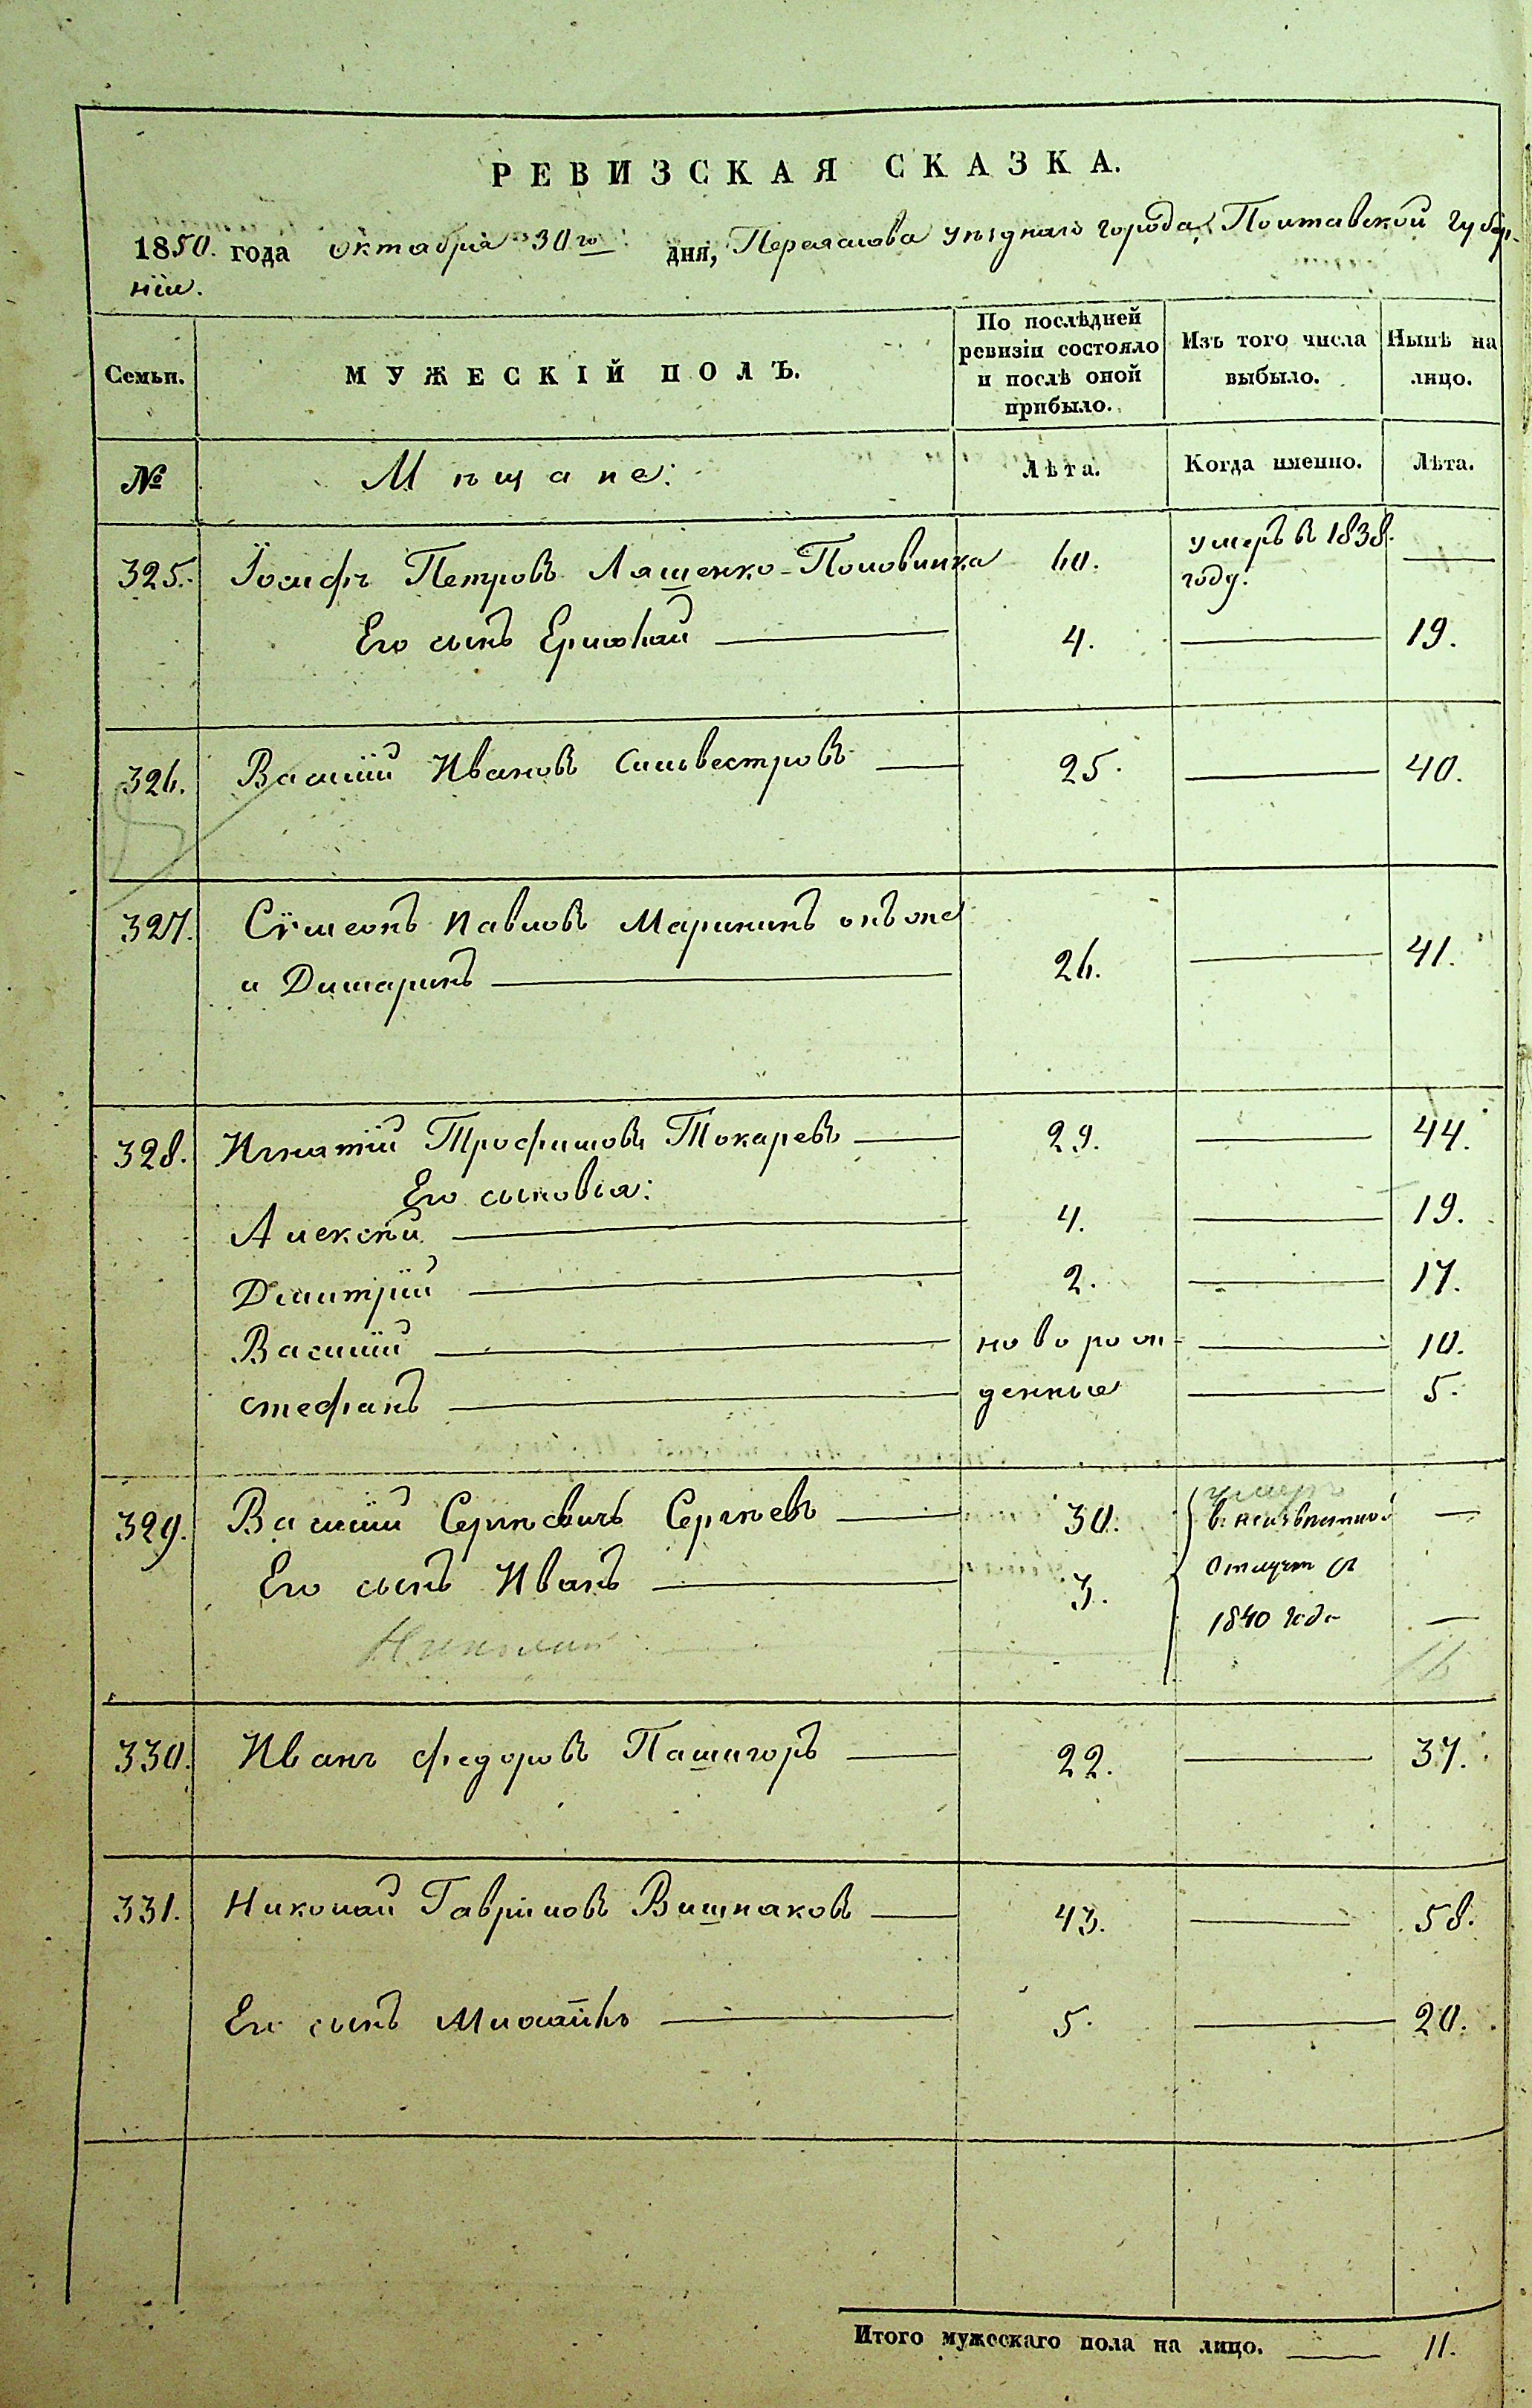 РЕВИЗСКАЯ СКАЗКА.
1850. года октября 30го дня, Переяслова уѣзднаго города, Полтавской Губер-
ніи.
Семьи.
МУЖЕСКІЙ ПОЛЪ.
По послѣдней
ревизіи состояло
и послѣ оной
прибыло.
Изъ того числа
выбыло.
Нынѣ на
лицо.
№
Мѣщане:
Лѣта.
Когда именно.
Лѣта.
325. Іосифъ Петровъ Ляшенко-Половинка 60. умеръ в 1838.
году.
Его сынъ Ермолай 4. 19.
326. Василій Ивановъ Сильвестровъ 25. 40.
327. Сѵмеонъ Павловъ Мариничъ онъ же
и Димаричъ 26. 41.
328. Игнатій Трофимовъ Токаревъ 29. 44.
Его сыновья:
Алексѣй 4. 19.
Дмитрій 2. 17.
Василій новорож- 10.
Стефанъ денные 5.
329. Василій Сергѣевичъ Сергѣевъ 30. умеръ
в неизвѣстной
Его сынъ Иванъ 3. отлучке с
1840 года
Николай 16
330. Иванъ Федоровъ Пашигоръ 22. 37.
331. Николай Гавриловъ Вишняковъ 43. 58.
Его сынъ Михаилъ 5. 20.
Итого мужескаго пола на лицо. 11.